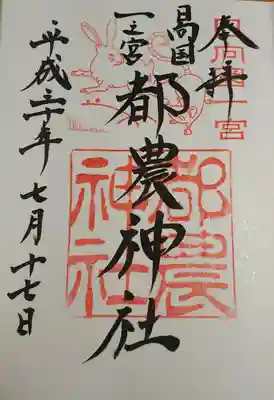 奉拝
日向國一宮
高国
一之宮
都農神社
都農
神社
平成三十年七月十七日